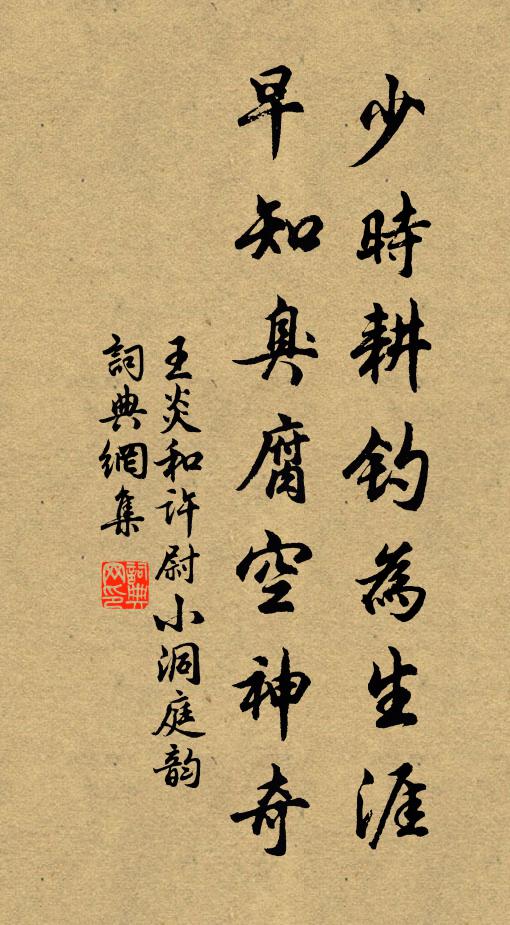 少時耕釣為生涯
早知臭腐空神奇
王炎和許尉小洞庭韵
詞典網集
詞典
网印